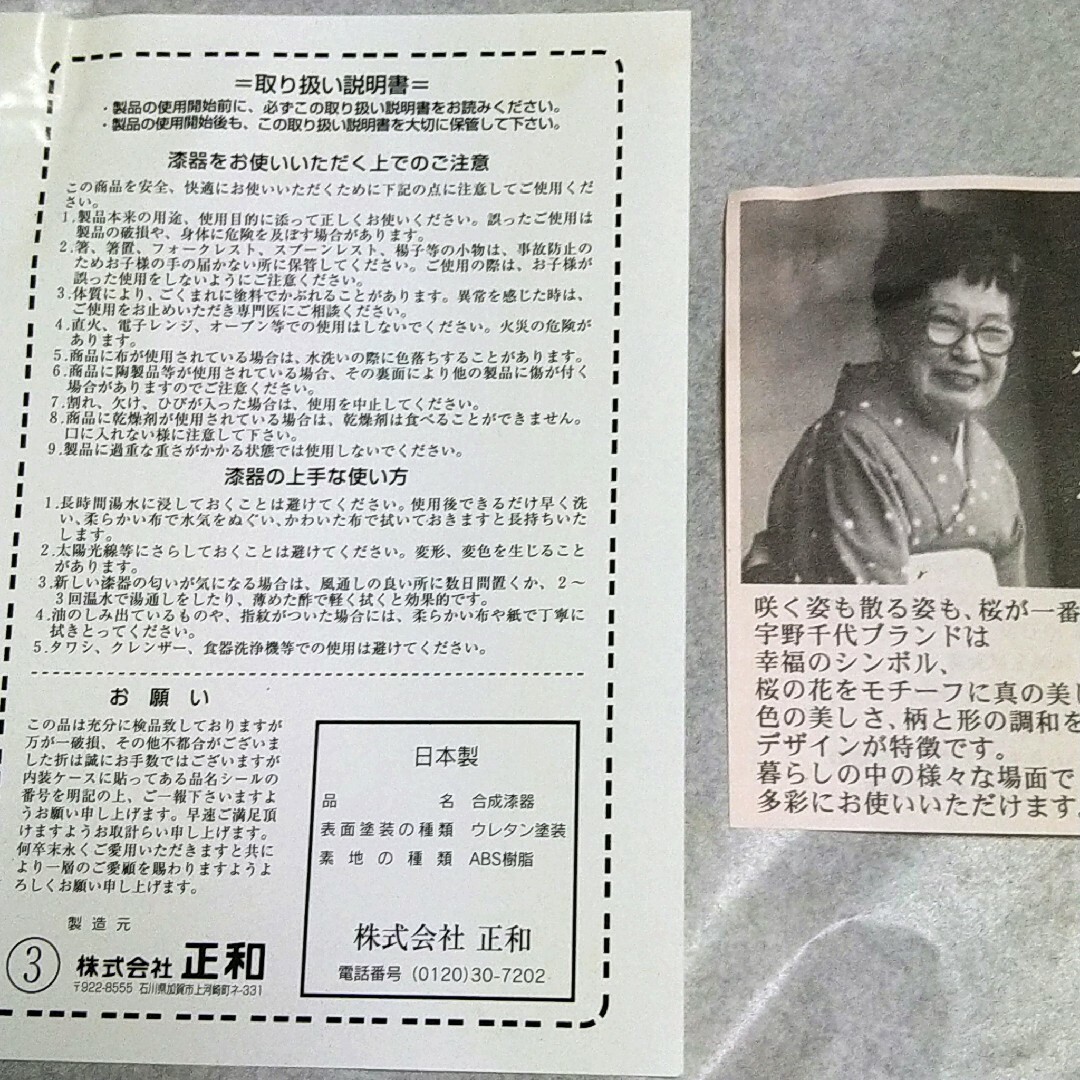 =取り扱い説明書=
・製品の使用開始前に、必ずこの取り扱い説明書をお読みください。
・製品の使用開始後も、この取り扱い説明書を大切に保管して下さい。
漆器をお使いいただく上でのご注意
この商品を安全、快適にお使いいただくために下記の点に注意してご使用くだ
さい。
1.製品本来の用途、使用目的に添って正しくお使いください。誤ったご使用は
製品の破損や、身体に危険を及ぼす場合があります。
2.箸、箸置、フォークレスト、スプーンレスト、楊子等の小物は、事故防止の
ためお子様の手の届かない所に保管してください。ご使用の際は、お子様が
誤った使用をしないようにご注意ください。
3.体質により、ごくまれに塗料でかぶれることがあります。異常を感じた時は、
ご使用をお止めいただき専門医にご相談ください。
4.直火、電子レンジ、オーブン等での使用はしないでください。火災の危険が
あります。
5.商品に布が使用されている場合は、水洗いの際に色落ちすることがあります。
6.商品に陶製品等が使用されている場合、その裏面により他の製品に傷が付く
場合がありますのでご注意ください。
7.割れ、欠け、ひびが入った場合は、使用を中止してください。
8.商品に乾燥剤が使用されている場合は、乾燥剤は食べることができません。
口に入れない様に注意して下さい。
9.製品に過重な重さがかかる状態では使用しないでください。
漆器の上手な使い方
1.長時間湯水に浸しておくことは避けてください。使用後できるだけ早く洗
い、柔らかい布で水気をぬぐい、かわいた布で拭いておきますと長持ちいた
します。
2.太陽光線等にさらしておくことは避けてください。変形、変色を生じること
があります。
3.新しい漆器の匂いが気になる場合は、風通しの良い所に数日間置くか、2〜
3回温水で湯通しをしたり、薄めた酢で軽く拭くと効果的です。
4.油のしみ出ているものや、指紋がついた場合には、柔らかい布や紙で丁寧に
拭きとってください。
5.タワシ、クレンザー、食器洗浄機等での使用は避けてください。
お願い
この品は充分に検品致しておりますが
万が一破損、その他不都合がございま
した折は誠にお手数ではございますが
内装ケースに貼ってある品名シールの
番号を明記の上、ご一報下さいますよ
うお願い申し上げます。早速ご満足頂
けますようお取計らい申し上げます。
何卒末永くご愛用いただきますと共に
より一層のご愛顧を賜わりますようよ
ろしくお願い申し上げます。
製造元
③ 株式会社 正和
〒922-8555 石川県加賀市上河崎町ネ-331
日本製
品名 合成漆器
表面塗装の種類 ウレタン塗装
素地の種類 ABS樹脂
株式会社 正和
電話番号 (0120)30-7202
咲く姿も散る姿も、桜が一番
宇野千代ブランドは
幸福のシンボル、
桜の花をモチーフに真の美し
色の美しさ、柄と形の調和を
デザインが特徴です。
暮らしの中の様々な場面で
多彩にお使いいただけます。